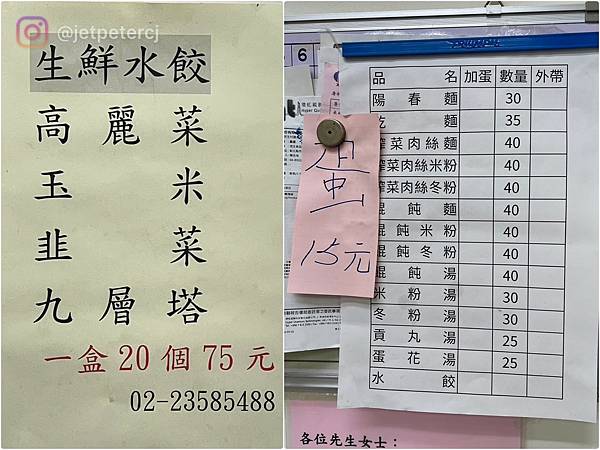 @jetpetercj
生鮮水餃
高麗菜
玉米
韭菜
九層塔
一盒20個75元
02-23585488
6
蛋
15元
品名 加蛋 數量 外帶
陽春麵 30
麵 35
菜肉絲麵 40
菜肉絲米粉 40
菜肉絲冬粉 40
餛飩麵 40
餛飩米粉 40
餛飩冬粉 40
餛飩湯 40
米粉湯 30
冬粉湯 30
貢丸湯 25
蛋花湯 25
水餃
各位先生女士：